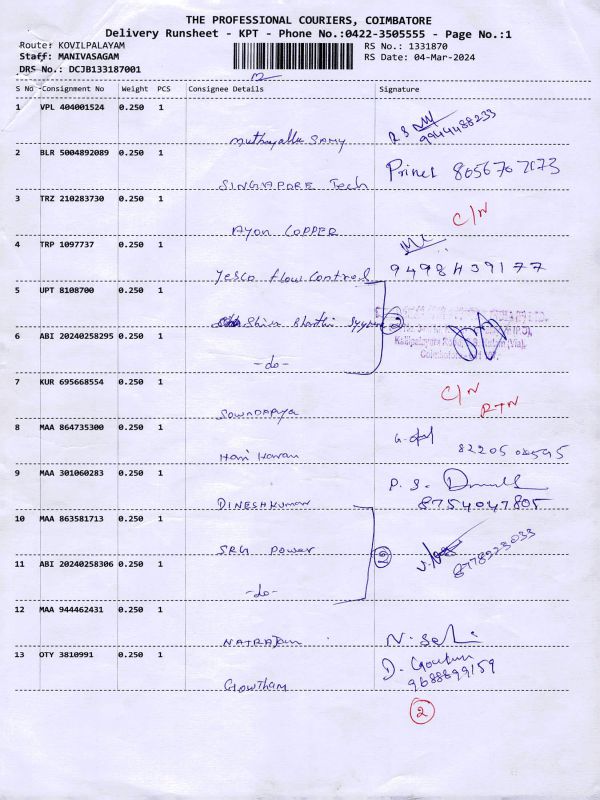 THE PROFESSIONAL COURIERS, COIMBATORE
Delivery Runsheet - KPT - Phone No.:0422-3505555 - Page No.:1
Route: KOVILPALAYAM RS No.: 1331870
Staff: MANIVASAGAM RS Date: 04-Mar-2024
DRS No.: DCJB133187001
S No Consignment No Weight PCS Consignee Details Signature
1 VPL 404001524 0.250 1
9944488233
2 BLR 5004892089 0.250 1
SINGAPORE Tech
3 TRZ 210283730 0.250 1
C/N
AYon COPPER
4 TRP 1097737 0.250 1
Yesco flow Control 9498439177
5 UPT 8108700 0.250 1
Shiva Bharathi 2
6 ABI 20240258295 0.250 1
-do-
7 KUR 695668554 0.250 1
C/N
RTN
8 MAA 864735300 0.250 1
Hari Haran
9 MAA 301060283 0.250 1
P. S.
DINESHKUMAR 8754047805
10 MAA 863581713 0.250 1
SRG Power 2 8778923033
11 ABI 20240258306 0.250 1
-do-
12 MAA 944462431 0.250 1
NATRAJan
13 OTY 3810991 0.250 1
D. Gowtham
9688899159
Gowtham
2